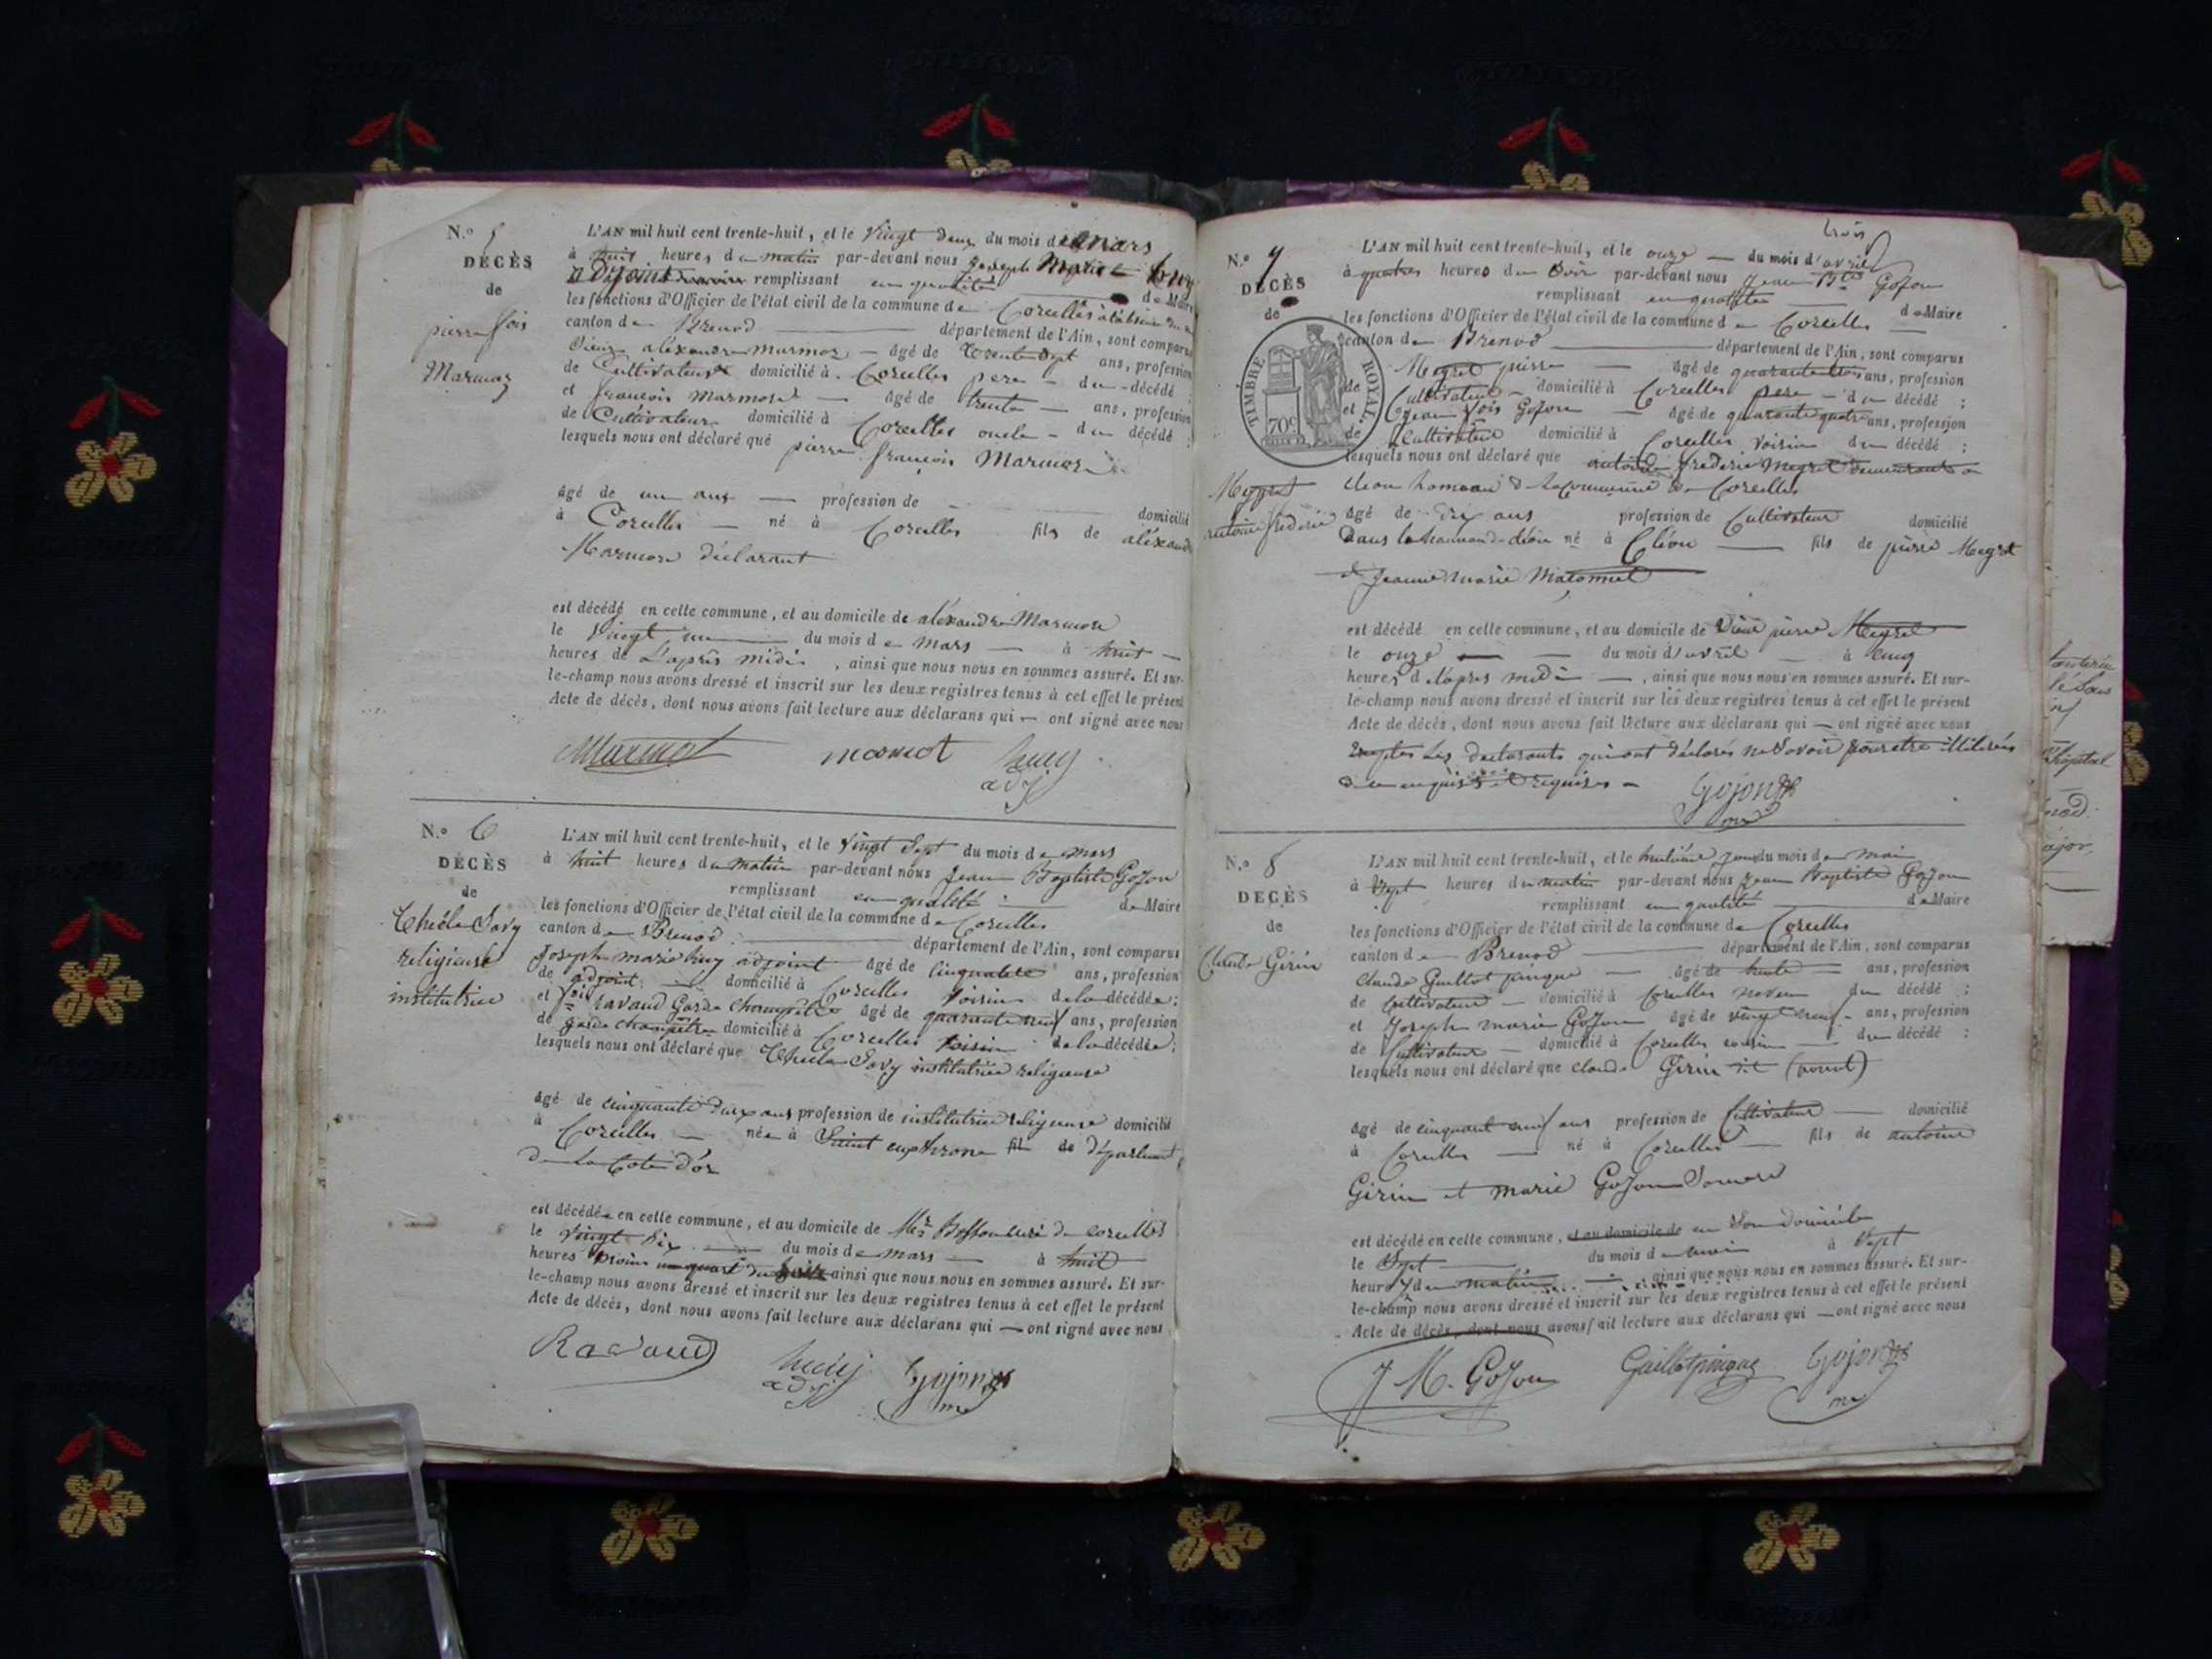 N.º 5
DÉCÈS
de
pierre fois
Marmoz
L'AN mil huit cent trente-huit, et le vingt deux du mois de mars
à huit heures du matin par-devant nous joseph Marie huy
adjoint remplissant en qualité de Maire
les fonctions d'Officier de l'état civil de la commune de Corcelles
canton de Brenod département de l'Ain, sont comparus
Sieur alexandre marmoz âgé de trente sept ans, profession
de Cultivateur domicilié à Corcelles pere du décédé ;
et françois marmoz âgé de trente ans, profession
de Cultivateur domicilié à Corcelles oncle du décédé ;
lesquels nous ont déclaré que pierre françois Marmoz
âgé de un ans profession de domicilié
à Corcelles né à Corcelles fils de alexandre
Marmoz déclarant
est décédé en cette commune, et au domicile de alexandre Marmoz
le vingt un du mois de mars à huit
heures de L'après midi, ainsi que nous nous en sommes assuré. Et sur-
le-champ nous avons dressé et inscrit sur les deux registres tenus à cet effet le présent
Acte de décès, dont nous avons fait lecture aux déclarans qui ont signé avec nous
huy
adj
N.º 6
DÉCÈS
de
Thécle Savy
religieuse
institutrice
L'AN mil huit cent trente-huit, et le vingt Sept du mois de mars
à huit heures du matin par-devant nous jean Baptiste Gojon
remplissant en qualité de Maire
les fonctions d'Officier de l'état civil de la commune de Corcelles
canton de Brenod département de l'Ain, sont comparus
joseph marie huy adjoint âgé de cinquante ans, profession
de adjoint domicilié à Corcelles voisin de la décédée ;
et fois ravaud Garde Champêtre âgé de quarante neuf ans, profession
de garde champêtre domicilié à Corcelles voisin de la décédée ;
lesquels nous ont déclaré que Thécle Savy institutrice religieuse
âgé de cinquante deux ans profession de institutrice religieuse domicilié
à Corcelles née à Saint euphrone fils de département
de la Cote d'or
est décédée en cette commune, et au domicile de Mr curé de corcelles
le vingt Six du mois de mars à huit
heures moins un quart du ainsi que nous nous en sommes assuré. Et sur-
le-champ nous avons dressé et inscrit sur les deux registres tenus à cet effet le présent
Acte de décès, dont nous avons fait lecture aux déclarans qui ont signé avec nous
Ravaud huy Gojon
adj me
N.º 7
DÉCÈS
de
TIMBRE ROYAL
70c
Meygret
antoine frederic
L'AN mil huit cent trente-huit, et le onze du mois d'avril
à quatre heures du Soir par-devant nous jean Bte Gojon
remplissant en qualité de Maire
les fonctions d'Officier de l'état civil de la commune de Corcelles
canton de Brenod département de l'Ain, sont comparus
Meygret pierre âgé de quarante trois ans, profession
de Cultivateur domicilié à Corcelles pere du décédé ;
et jean fois Gojon âgé de quarante quatre ans, profession
de Cultivateur domicilié à Corcelles voisin du décédé ;
lesquels nous ont déclaré que antoine frederic Meygret demeurant a
cleon hameau de la commune de Corcelles
âgé de dix ans profession de Cultivateur domicilié
Dans le hameau de cléon né à Cléon fils de pierre Meygret
et jeanne marie
est décédé en cette commune, et au domicile de Sieur pierre Meygret
le onze du mois d'avril à cinq
heures de l'apres midi, ainsi que nous nous en sommes assuré. Et sur-
le-champ nous avons dressé et inscrit sur les deux registres tenus à cet effet le présent
Acte de décès, dont nous avons fait lecture aux déclarans qui ont signé avec nous
Les declarants qui ont déclarés ne Savoir pour etre illitérés
de ce enquis et requises
Gojon
me
N.º 8
DÉCÈS
de
Claude Girin
L'AN mil huit cent trente-huit, et le huitième jour du mois de mai
à Sept heures du matin par-devant nous jean Baptiste Gojon
remplissant en qualité de Maire
les fonctions d'Officier de l'état civil de la commune de Corcelles
canton de Brenod département de l'Ain, sont comparus
claude Guillot pingue âgé de trente ans, profession
de Cultivateur domicilié à Corcelles neveu du décédé ;
et joseph marie Gojon âgé de vingt neuf ans, profession
de Cultivateur domicilié à Corcelles cousin du décédé :
lesquels nous ont déclaré que claude Girin dit
âgé de cinquant neuf ans profession de Cultivateur domicilié
à Corcelles né à Corcelles fils de antoine
Girin et marie Gojon
est décédé en cette commune, et au domicile de en Son Domicile
le Sept du mois de mai à Sept
heures du matin ainsi que nous nous en sommes assuré. Et sur-
le-champ nous avons dressé et inscrit sur les deux registres tenus à cet effet le présent
Acte de décès, dont nous avons fait lecture aux déclarans qui ont signé avec nous
J M. Gojon Guillotpingue Gojon
me